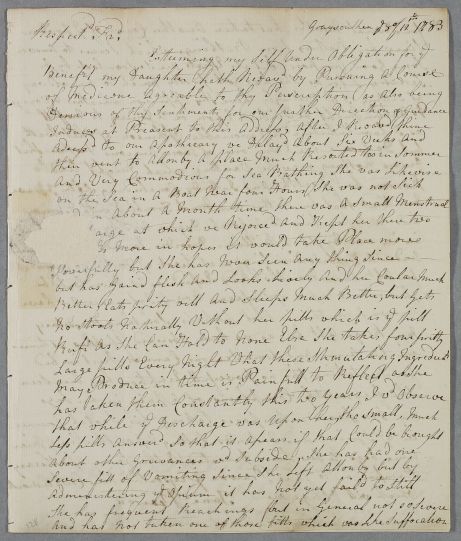 Respect.d Frd.
Graysouthen 8th/12th 1783
Esteeming my Self Under Obligation for ye
Benefit my Daughter hath Receivd by Pursuing a Course
of Medicine agreeable to thy Perscription as also being
Desirous of thy Sentiments for our further Direction & Guidance
Induces at Preasent to this Address, after I Receivd thine
Adresd to our Apothecary we Delayd about Six Weeks and
then went to Alonby a place Much Resorted too in Sommer
and Very Commodious for Sea Bathing She was Likewise
on the Sea in a Boat Near four Hours She was not Sick
in About a Month time, there was a Small Menstrual
arge at which we Rejoiced and Keept her there two
More in hopes it would take Place more
Powerfully but She has Never Seen Any thing Since
but has Gaind flesh and Looks Nicely And her Coular Much
Better Eats prity well And Sleeps Much Better, but Gets
No Stools Naturally Without her pills which is ye pill
Rufi as She Can Hold to None Else She takes four pritty
Large pills Every Night What these Stimulating Ingredients
may Produce in time is Painfull to Reflect as She
has taken them Constantly this two years, I wd Observe
that while ye Discharge was Upon her tho Small, Much
Less pills Answerd So that it apears if that Could be brought
About other Grievances wd Subside, She has had one
Severe fit of Vomiting Since She Left Allonby but by
Admenistering ye Opium it has Not yet faild to Still
She has frequent Reachings but in General not so Severe
And has Not taken one of those fitts which was Like Suffocation